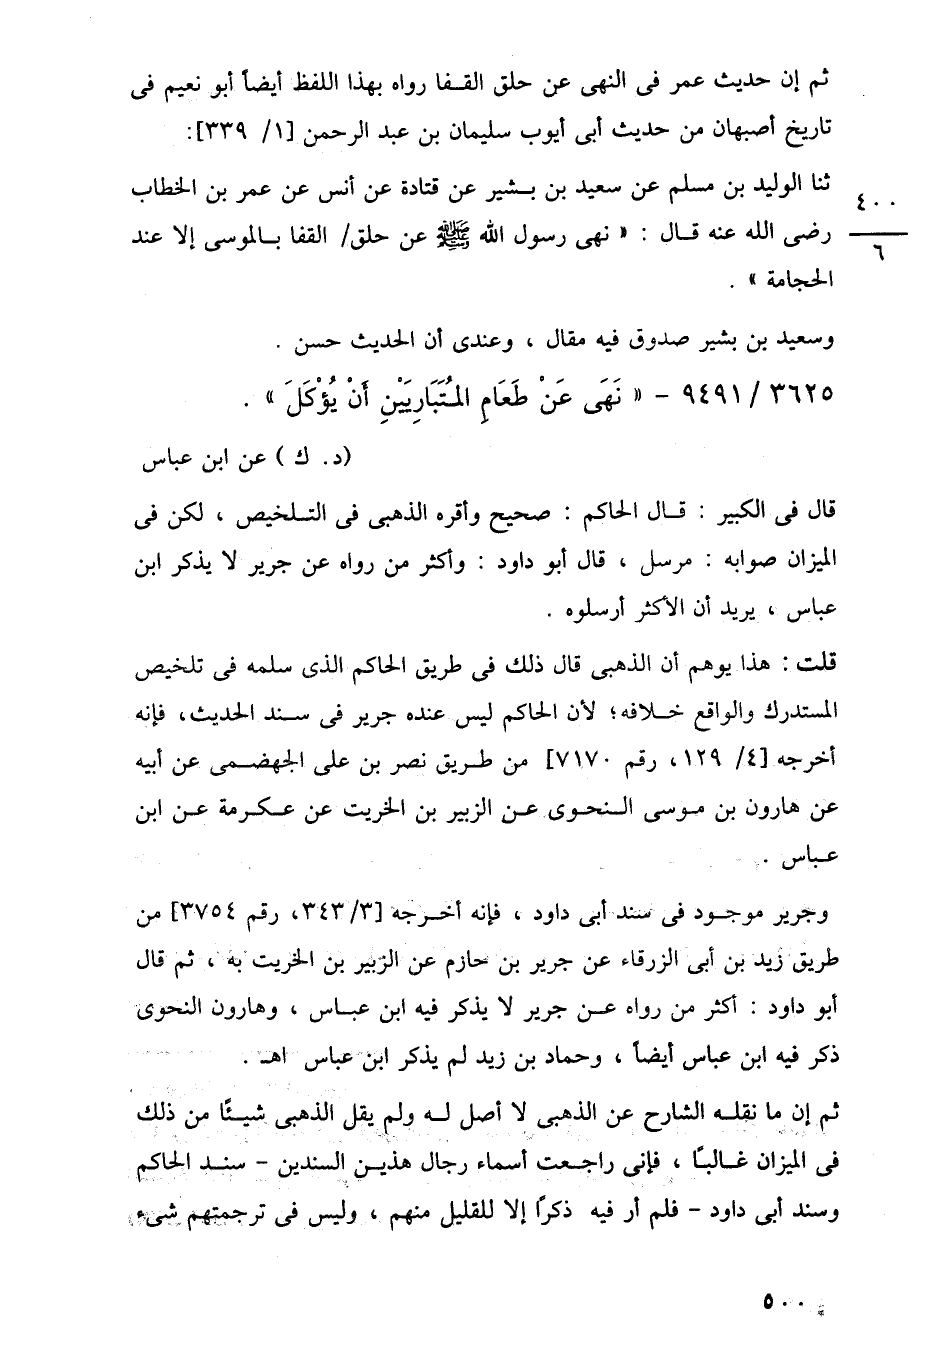 ثم إن حديث عمر فى النهى عن حلق القفا رواه بهذا اللفظ أيضاً أبو نعيم فى
تاريخ أصبهان من حديث أبى أيوب سليمان بن عبد الرحمن [١/ ٣٣٩]:
ثنا الوليد بن مسلم عن سعيد بن بشير عن قتادة عن أنس عن عمر بن الخطاب
٤٠٠
رضى الله عنه قال : « نهى رسول الله ﷺ عن حلق/ القفا بالموسى إلا عند
٦
الحجامة » .
وسعيد بن بشير صدوق فيه مقال ، وعندى أن الحديث حسن .
٣٦٢٥/ ٩٤٩١ – « نَهَى عَنْ طَعَامِ المُتَبَارِيَيْنِ أَنْ يُؤْكَلَ » .
(د. ك ) عن ابن عباس
قال فى الكبير : قال الحاكم : صحيح وأقره الذهبى فى التلخيص ، لكن فى
الميزان صوابه : مرسل ، قال أبو داود : وأكثر من رواه عن جرير لا يذكر ابن
عباس ، يريد أن الأكثر أرسلوه .
قلت : هذا يوهم أن الذهبى قال ذلك فى طريق الحاكم الذى سلمه فى تلخيص
المستدرك والواقع خلافه؛ لأن الحاكم ليس عنده جرير فى سند الحديث، فإنه
أخرجه [٤/ ١٢٩، رقم ٧١٧٠] من طريق نصر بن على الجهضمى عن أبيه
عن هارون بن موسى النحوى عن الزبير بن الخريت عن عكرمة عن ابن
عباس .
وجرير موجود فى سند أبى داود ، فإنه أخرجه [٣/ ٣٤٣، رقم ٣٧٥٤] من
طريق زيد بن أبى الزرقاء عن جرير بن حازم عن الزبير بن الخريت به ، ثم قال
أبو داود : أكثر من رواه عن جرير لا يذكر فيه ابن عباس ، وهارون النحوى
ذكر فيه ابن عباس أيضاً ، وحماد بن زيد لم يذكر ابن عباس اهـ .
ثم إن ما نقله الشارح عن الذهبى لا أصل له ولم يقل الذهبى شيئًا من ذلك
فى الميزان غالبًا ، فإنى راجعت أسماء رجال هذين السندين – سند الحاكم
وسند أبى داود – فلم أر فيه ذكرًا إلا للقليل منهم ، وليس فى ترجمتهم شىء
٥٠٠